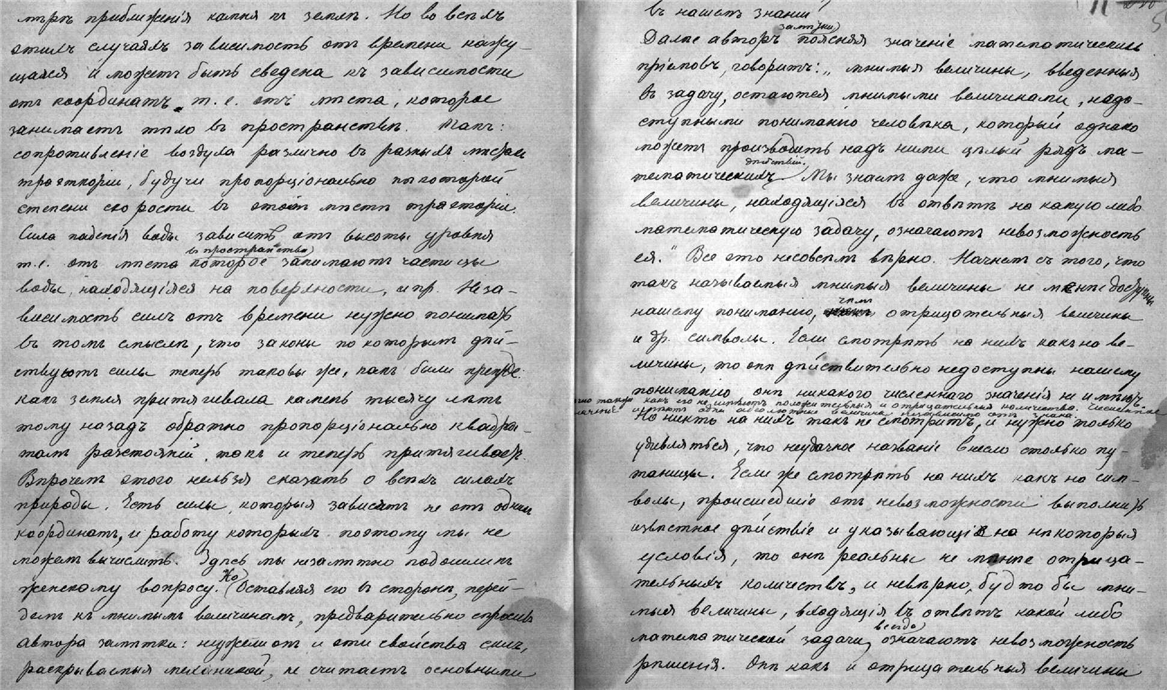 мѣръ приближенія камня къ землѣ. Но во всѣхъ
этихъ случаяхъ зависимость отъ времени кажу-
щаяся и можетъ быть сведена къ зависимости
отъ координатъ, т.е. отъ мѣста, которое
занимаетъ тѣло въ пространствѣ. Такъ:
сопротивленіе воздуха различно въ разныхъ мѣстахъ
траэкторіи, будучи пропорціонально нѣкоторой
степени скорости въ этомъ мѣстѣ траэкторіи.
Сила паденія воды зависитъ отъ высоты уровня
въ пространствѣ
т.е. отъ мѣста которое занимаютъ частицы
воды, находящіяся на поверхности, и пр. Неза-
висимость силъ отъ времени нужно понимать
въ томъ смыслѣ, что законы по которымъ дѣй-
ствуютъ силы теперь таковы же, какъ были прежде.
какъ земля притягивала камень тысячу лѣтъ
тому назадъ обратно пропорціонально квадра-
тамъ разстояній, такъ и теперь притягиваетъ.
Впрочемъ этого нельзя сказать о всѣхъ силахъ
природы. Есть силы, которыя зависятъ не отъ однихъ
координатъ, и работу которыхъ поэтому мы не
можемъ вычислить. Здѣсь мы незамѣтно подошли къ
Но
женскому вопросу. Оставляя его въ сторонѣ, перей-
демъ къ мнимымъ величинамъ, предварительно спросивъ
автора замѣтки: неужели онъ и эти свойства силъ,
раскрываемыя механикой, не считаетъ основными
11
5
въ нашемъ знаніи
замѣтки
Далѣе авторъ поясняя значеніе математическихъ
пріемовъ, говоритъ: „мнимыя величины, введенныя
въ задачу, остаются мнимыми величинами, недо-
ступными пониманію человѣка, который однако
можетъ производить надъ ними цѣлый рядъ ма-
дѣйствій.
тематическихъ Мы знаемъ даже, что мнимыя
величины, находящіяся въ отвѣтѣ на какую либо
математическую задачу, означаютъ невозможность
ея." Все это несовсѣмъ вѣрно. Начнемъ съ того, что
такъ называемыя мнимыя величины не менѣе доступны
чѣмъ
нашему пониманію, отрицательныя величины
и др. символы. Если смотрѣть на нихъ какъ на ве-
личины, то онѣ дѣйствительно недоступны нашему
пониманію онѣ никакого численнаго значенія не имѣютъ,
какъ его не имѣютъ положительныя и отрицательныя количества.
имѣютъ одни абсолютныя величины независимо отъ знака.
Но никто на нихъ такъ не смотритъ, и нужно только
удивляться, что неудачное названіе внесло столько пу-
таницы. Если же смотрѣть на нихъ какъ на сим-
волы, происшедшіе отъ невозможности выполнить
извѣстное дѣйствіе и указывающіе на нѣкоторыя
условія, то онѣ реальны не менѣе отрица-
тельныхъ количествъ, и невѣрно, будто бы мни-
мыя величины, входящія въ отвѣтъ какой либо
всегда
математической задачи, означаютъ невозможность
рѣшенія. Онѣ какъ и отрицательныя величины